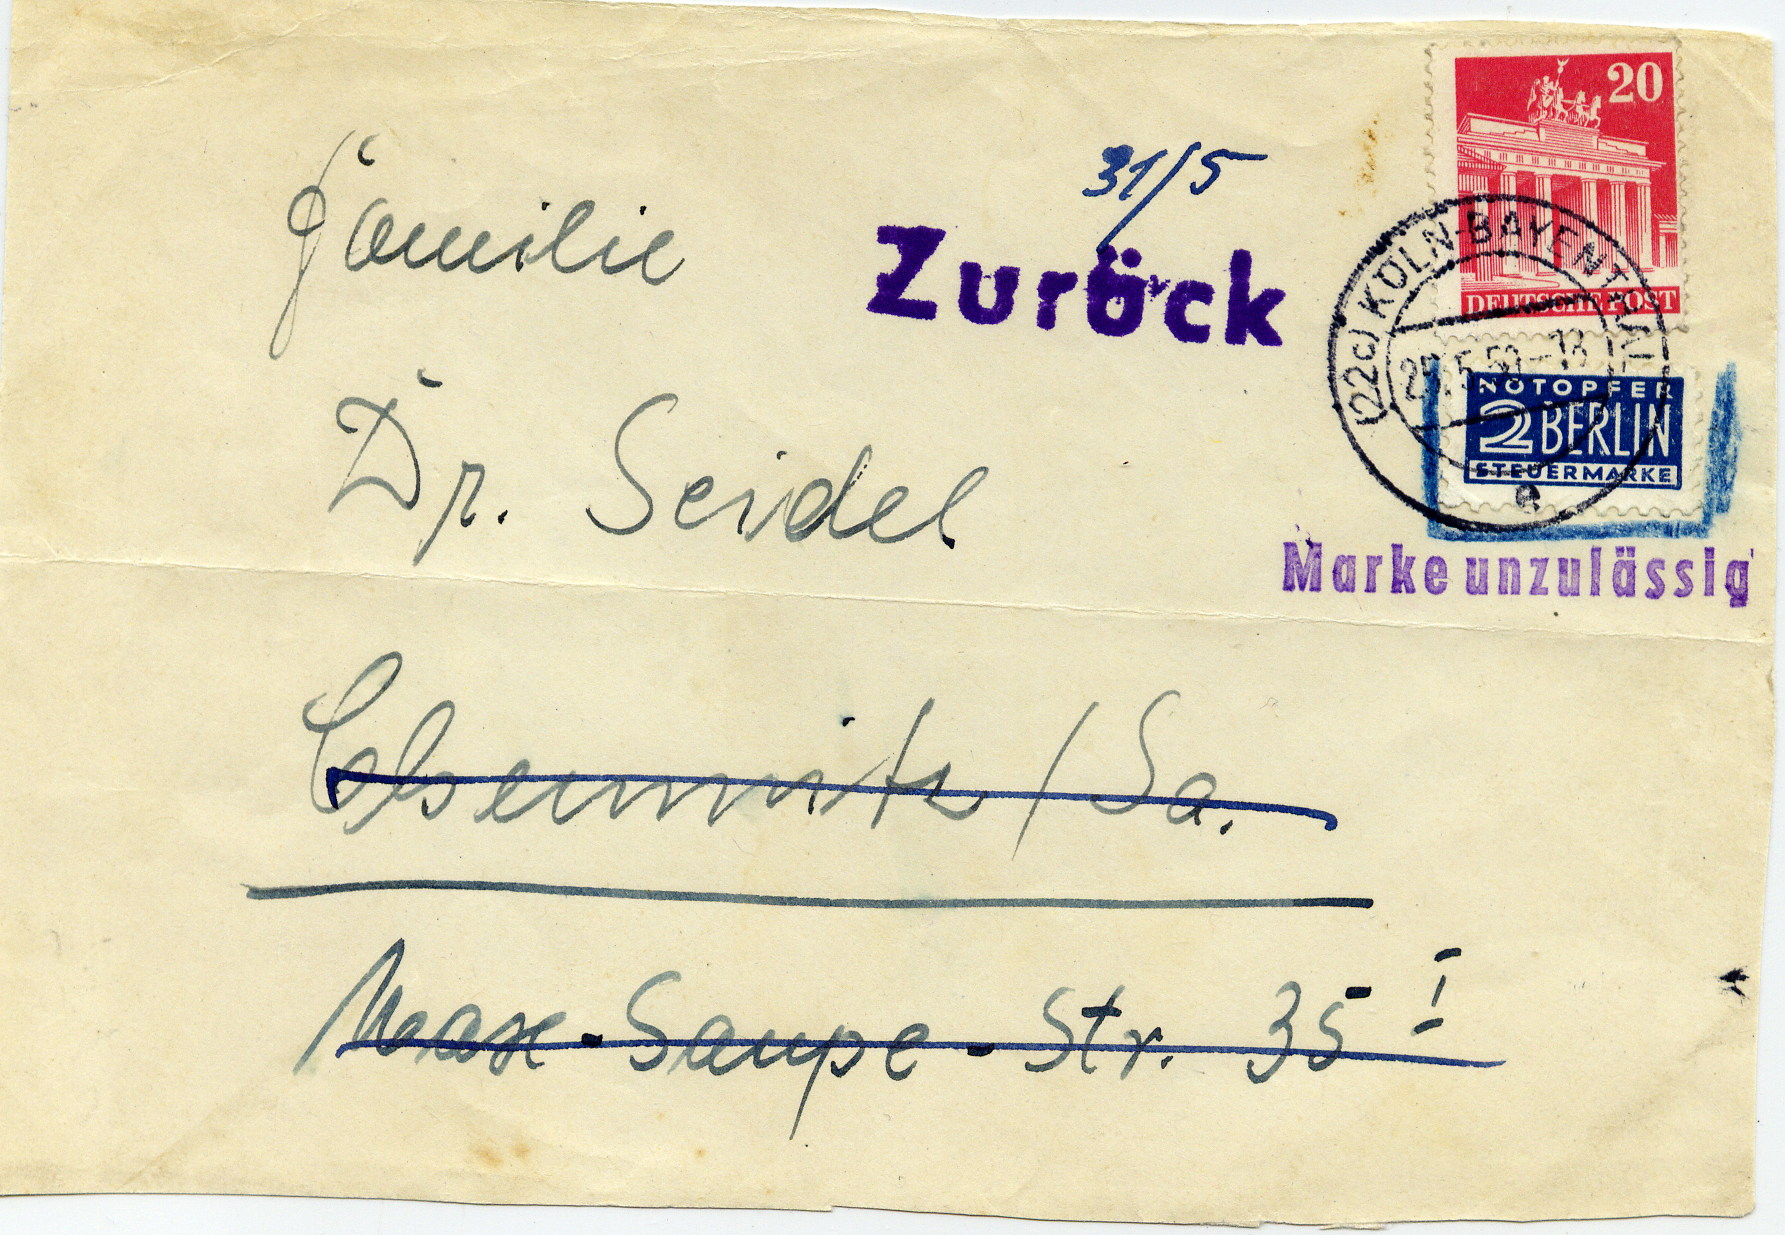 20
DEUTSCHE POST
31/5
Zurück
(22c) KÖLN-BAYENTHAL
25.5.50-18
e
NOTOPFER
2 BERLIN
STEUERMARKE
Marke unzulässig
Familie
Dr. Seidel
Chemnitz / Sa.
Max-Saupe-Str. 35 I